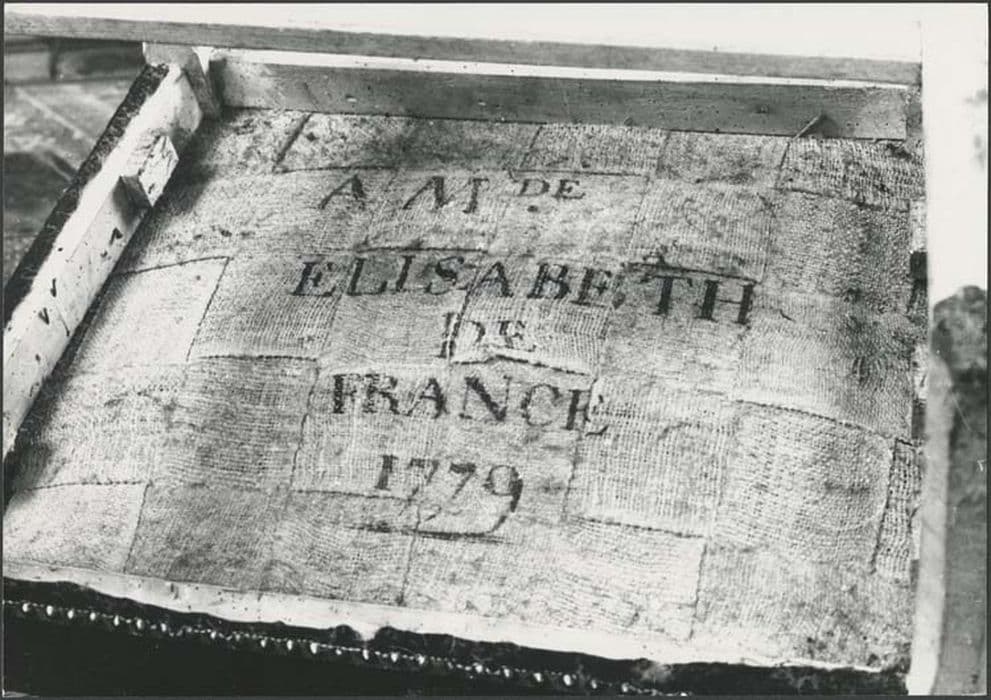 A M DE
ELISABETH
DE
FRANCE
1779